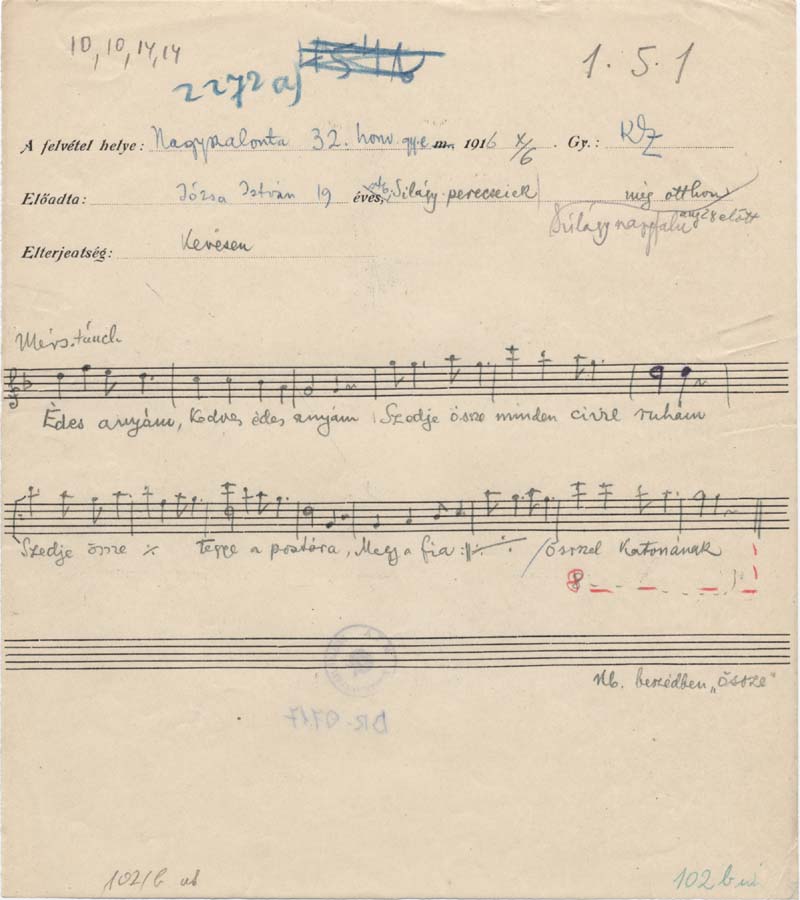 10, 10, 14, 14
1. 5. 1
2272 a)
A felvétel helye: Nagyszalonta 32. honv. gy. e. m. 1916 X/6. Gy.: KZ
Előadta: Józsa István 19 éves, Silágy-perecseiek még otthon
Szilágynagyfalu aug 28 előtt
Elterjeatség: Kevésen
Mérs. táncl.
Édes anyám, Kedves édes anyám Szedje össze minden civil ruhám
Szedje össze ·/· tegye a postára, Megy a fia :||: ·/· összel Katonának
8
Nb. beszédben „össze"
DR-0717
102/b
102 b